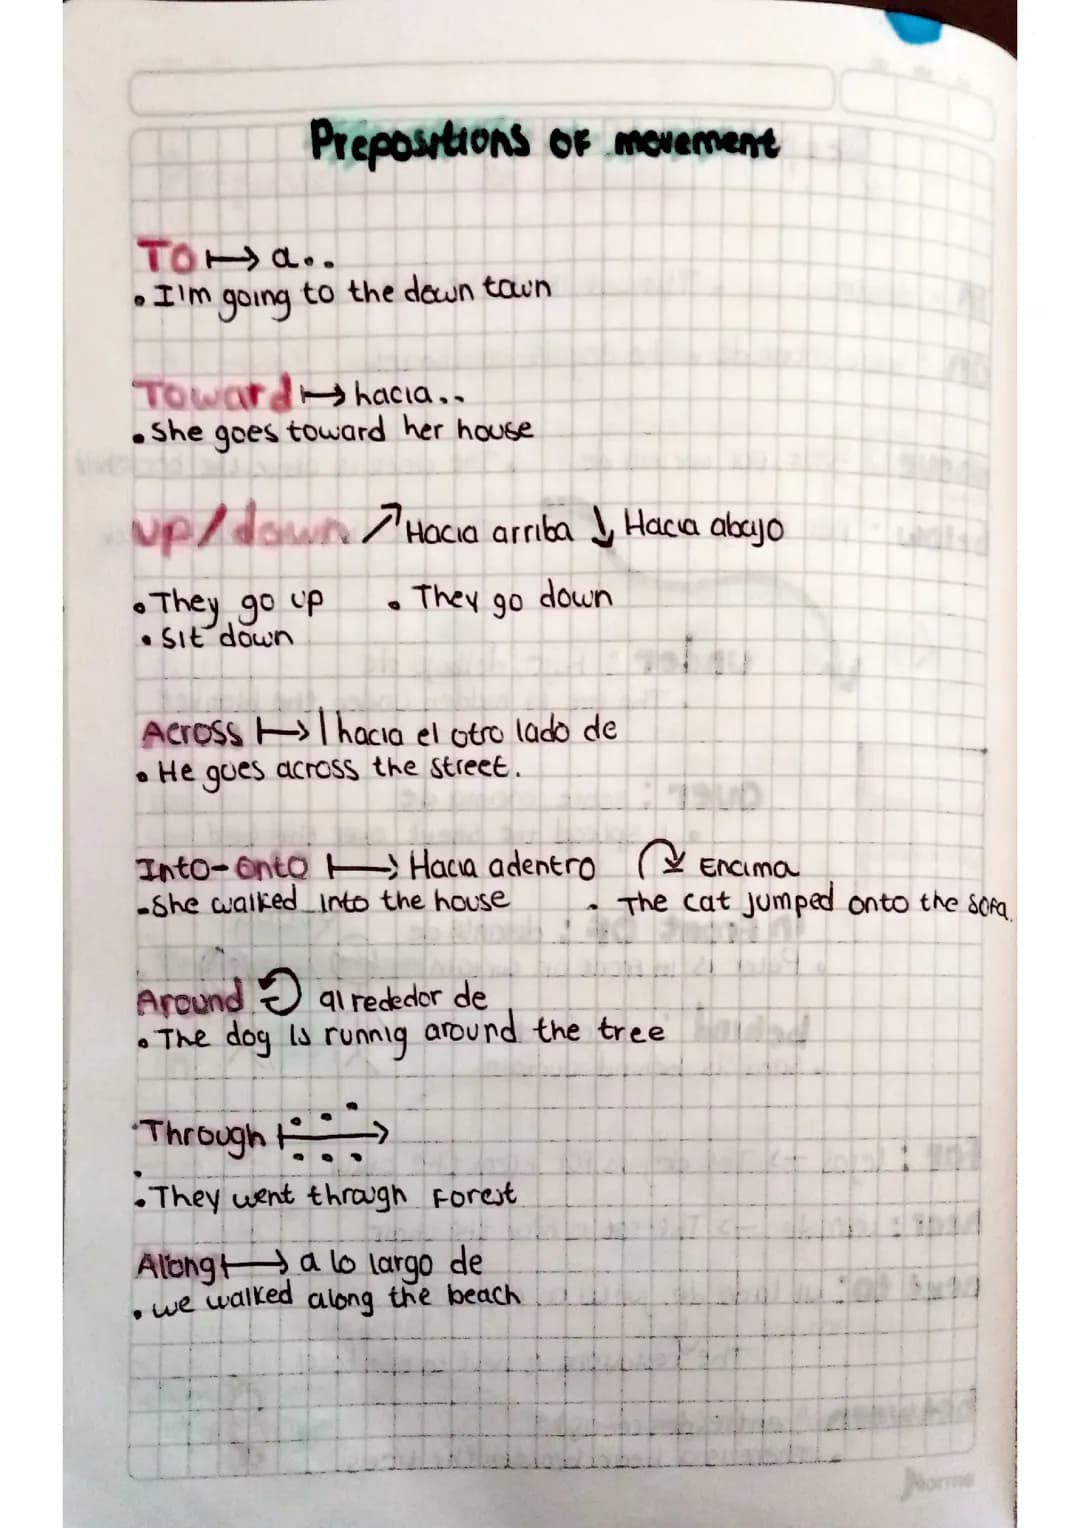 Prepositions of movement
To ↦ a..
• I'm going to the down town
Toward ↦ hacia..
• She goes toward her house
up/down ↗ Hacia arriba ↓ Hacia abajo
• They go up • They go down
• Sit down
Across ↦ | hacia el otro lado de
• He goes across the street.
Into-Onto ↦ Hacia adentro ↷ Encima
- She walked into the house • The cat jumped onto the sofa
Around ↺ alrededor de
• The dog is runnig around the tree
Through ↦
• They went through Forest
Along ↦ a lo largo de
• we walked along the beach
Norma